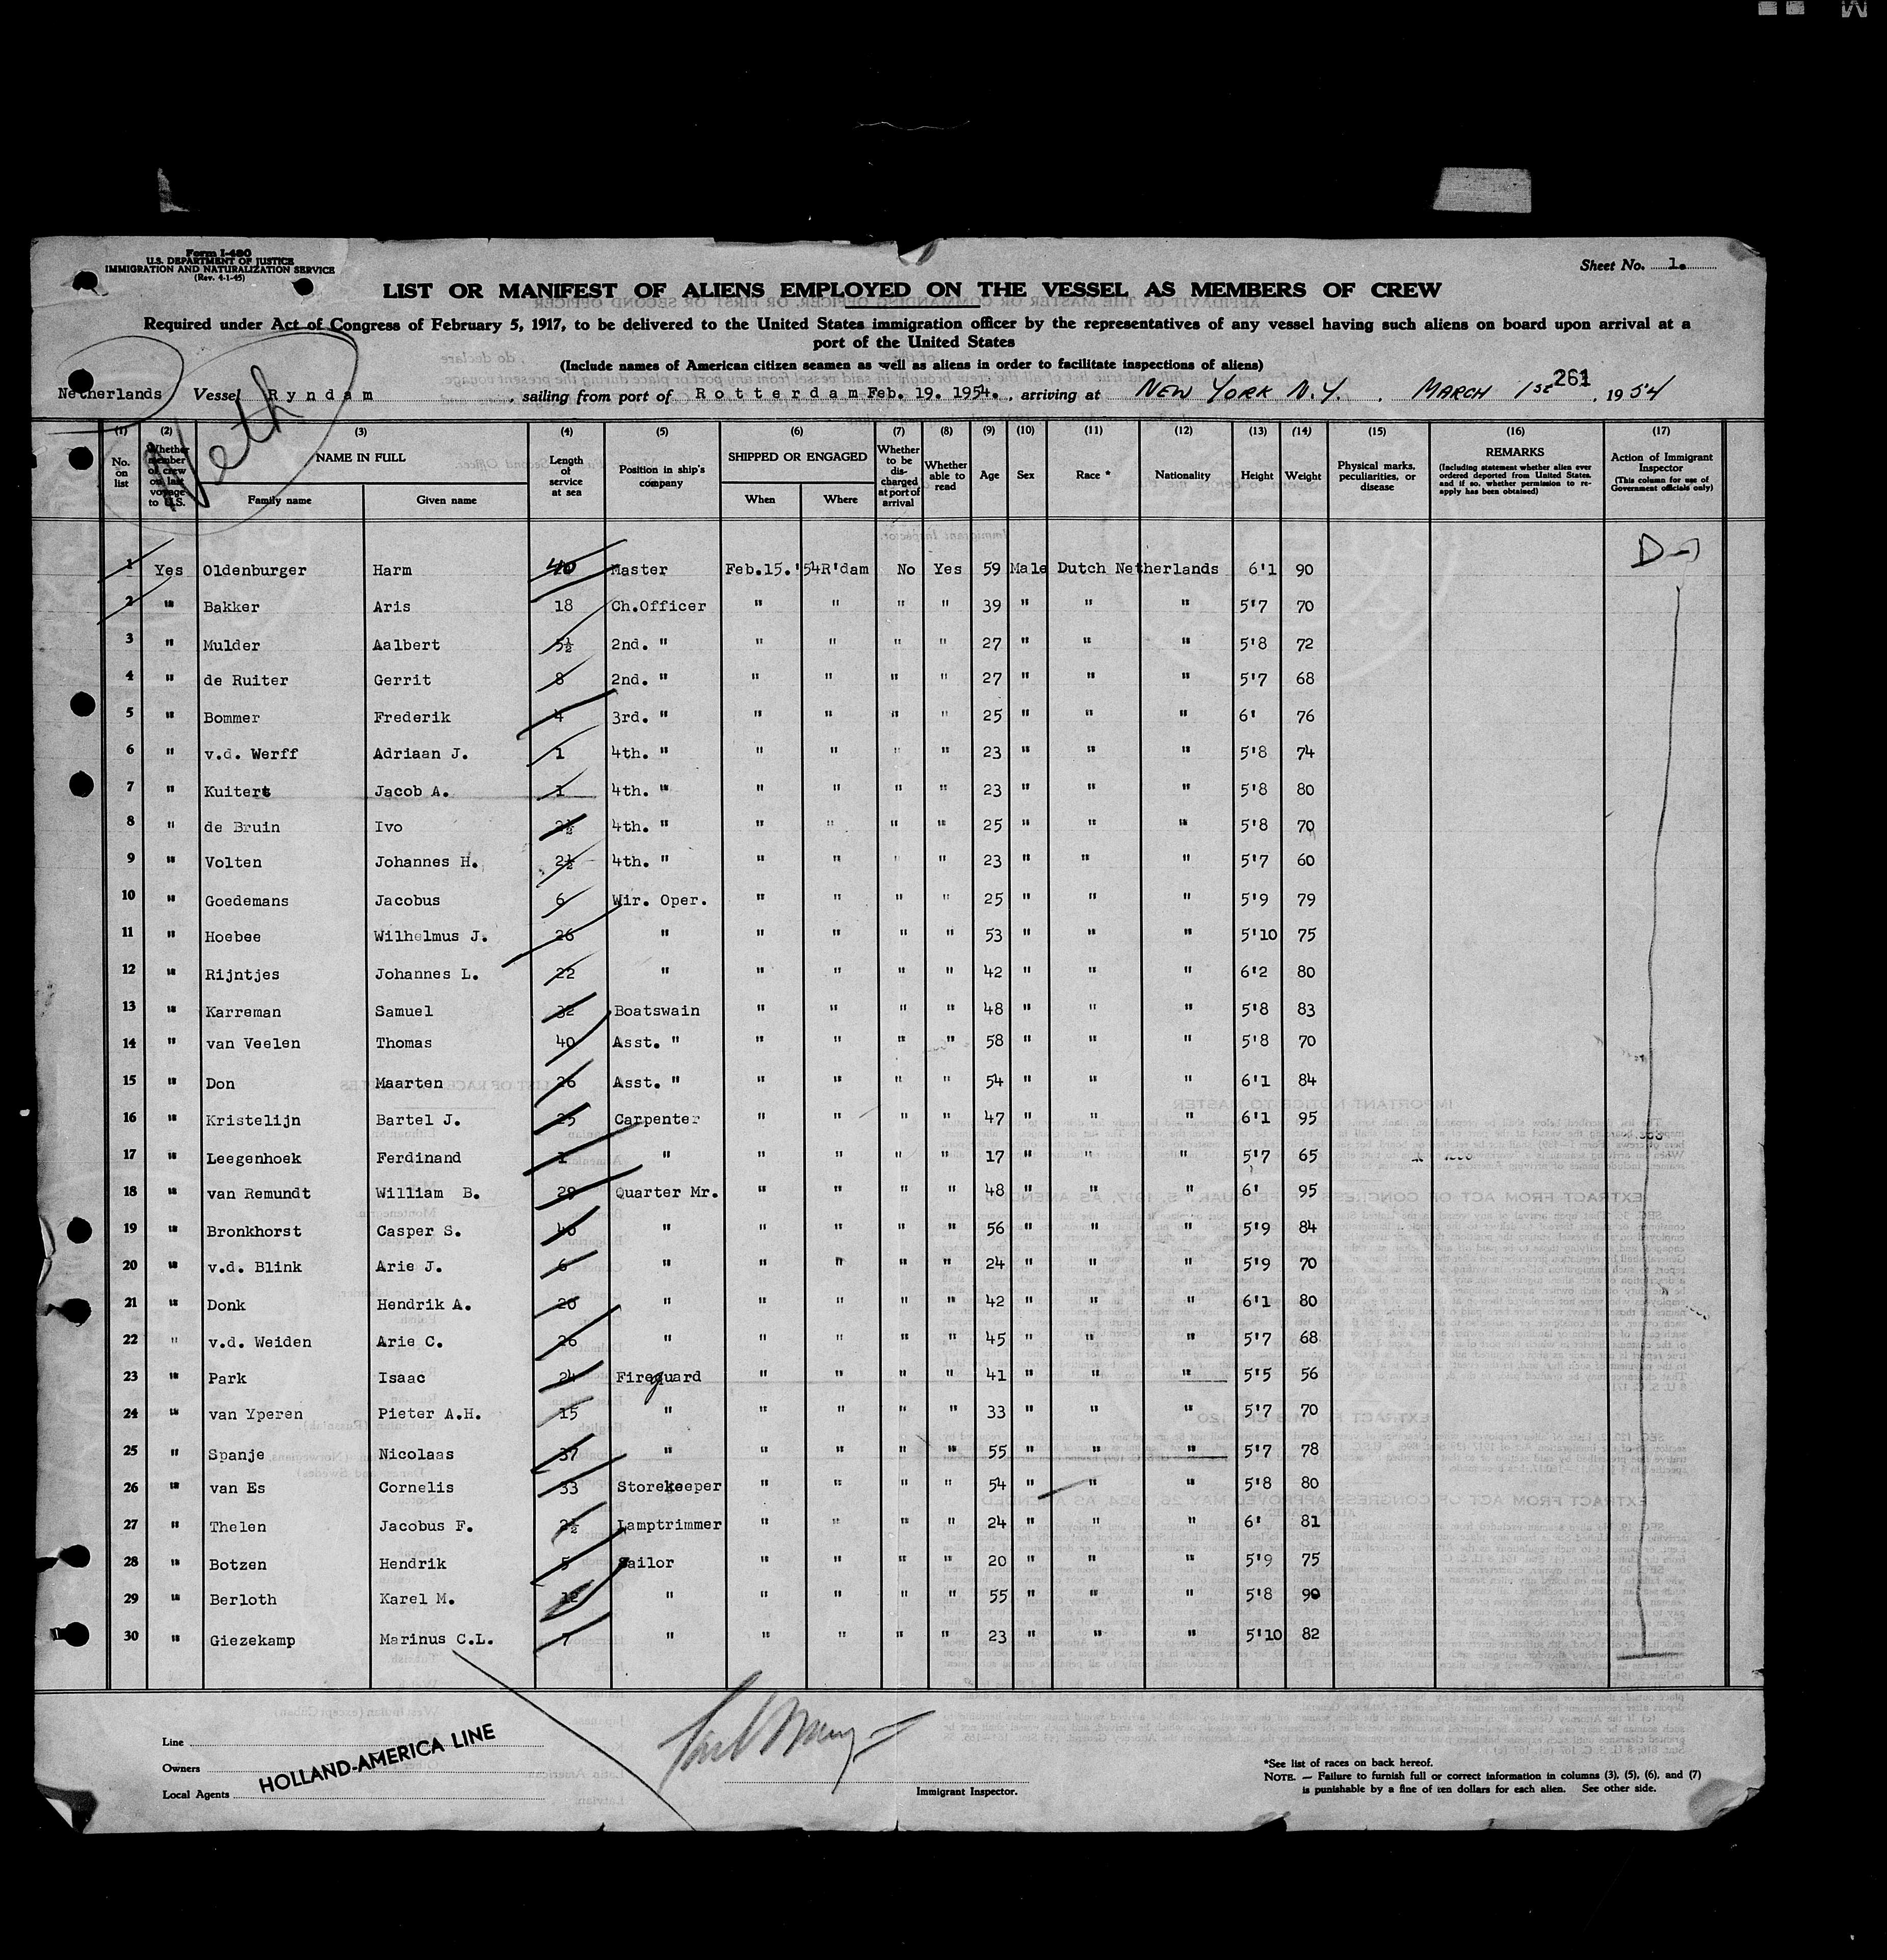 Form I-480
U.S. DEPARTMENT OF JUSTICE
IMMIGRATION AND NATURALIZATION SERVICE
(Rev. 4-1-45)
Sheet No. 1.
LIST OR MANIFEST OF ALIENS EMPLOYED ON THE VESSEL AS MEMBERS OF CREW
Required under Act of Congress of February 5, 1917, to be delivered to the United States immigration officer by the representatives of any vessel having such aliens on board upon arrival at a
port of the United States
(Include names of American citizen seamen as well as aliens in order to facilitate inspections of aliens)
261
Netherlands Vessel Ryndam, sailing from port of Rotterdam Feb. 19. 1954., arriving at NEW YORK N.Y., MARCH 1st, 1954
Neth
(1) (2) (3) (4) (5) (6) (7) (8) (9) (10) (11) (12) (13) (14) (15) (16) (17)
No. on list
Whether member of crew on last voyage to U.S.
NAME IN FULL
Family name
Given name
Length of service at sea
Position in ship's company
SHIPPED OR ENGAGED
When
Where
Whether to be discharged at port of arrival
Whether able to read
Age
Sex
Race *
Nationality
Height
Weight
Physical marks, peculiarities, or disease
REMARKS
(Including statement whether alien ever ordered deported from United States, and if so, whether permission to re-apply has been obtained)
Action of Immigrant Inspector
(This column for use of Government officials only)
1 Yes Oldenburger Harm 40 Master Feb.15.'54 R'dam No Yes 59 Male Dutch Netherlands 6'1 90
2 " Bakker Aris 18 Ch.Officer " " " " 39 " " " 5'7 70
3 " Mulder Aalbert 5½ 2nd. " " " " " 27 " " " 5'8 72
4 " de Ruiter Gerrit 8 2nd. " " " " " 27 " " " 5'7 68
5 " Bommer Frederik 4 3rd. " " " " " 25 " " " 6' 76
6 " v.d. Werff Adriaan J. 1 4th. " " " " " 23 " " " 5'8 74
7 " Kuitert Jacob A. 1 4th. " " " " " 23 " " " 5'8 80
8 " de Bruin Ivo 2½ 4th. " " " " " 25 " " " 5'8 70
9 " Volten Johannes H. 2½ 4th. " " " " " 23 " " " 5'7 60
10 " Goedemans Jacobus 6 Wir. Oper. " " " " 25 " " " 5'9 79
11 " Hoebee Wilhelmus J. 26 " " " " " 53 " " " 5'10 75
12 " Rijntjes Johannes L. 22 " " " " " 42 " " " 6'2 80
13 " Karreman Samuel 32 Boatswain " " " " 48 " " " 5'8 83
14 " van Veelen Thomas 40 Asst. " " " " " 58 " " " 5'8 70
15 " Don Maarten 26 Asst. " " " " " 54 " " " 6'1 84
16 " Kristelijn Bartel J. 25 Carpenter " " " " 47 " " " 6'1 95
17 " Leegenhoek Ferdinand 1 " " " " " 17 " " " 5'7 65
18 " van Remundt William B. 29 Quarter Mr. " " " " 48 " " " 6' 95
19 " Bronkhorst Casper S. 40 " " " " " 56 " " " 5'9 84
20 " v.d. Blink Arie J. 6 " " " " " 24 " " " 5'9 70
21 " Donk Hendrik A. 20 " " " " " 42 " " " 6'1 80
22 " v.d. Weiden Arie C. 26 " " " " " 45 " " " 5'7 68
23 " Park Isaac 24 Fireguard " " " " 41 " " " 5'5 56
24 " van Yperen Pieter A.H. 15 " " " " " 33 " " " 5'7 70
25 " Spanje Nicolaas 37 " " " " " 55 " " " 5'7 78
26 " van Es Cornelis 33 Storekeeper " " " " 54 " " " 5'8 80
27 " Thelen Jacobus F. 2½ Lamptrimmer " " " " 24 " " " 6' 81
28 " Botzen Hendrik 5 Sailor " " " " 20 " " " 5'9 75
29 " Berloth Karel M. 12 " " " " " 55 " " " 5'8 90
30 " Giezekamp Marinus C.L. 7 " " " " " 23 " " " 5'10 82
Line
Owners
Local Agents
HOLLAND-AMERICA LINE
Immigrant Inspector.
*See list of races on back hereof.
NOTE. — Failure to furnish full or correct information in columns (3), (5), (6), and (7)
is punishable by a fine of ten dollars for each alien. See other side.